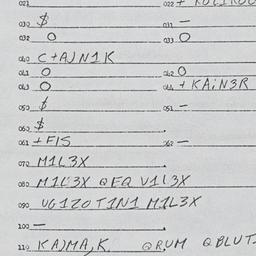 021 022 + KOL1KOO
030 $ 031 —
032 O 033 O
040 C+A)N1K
041 O 042 O
043 O 044 + KAiN3R
050 $ 051 —
060 $
061 + FIS 062 —
070 M1L3X
080 M1L3X QFQ V1L3X
090 UG1ZO T1N1 M1L3X
100 —
110 KA)MA,K QRUM QBLUT